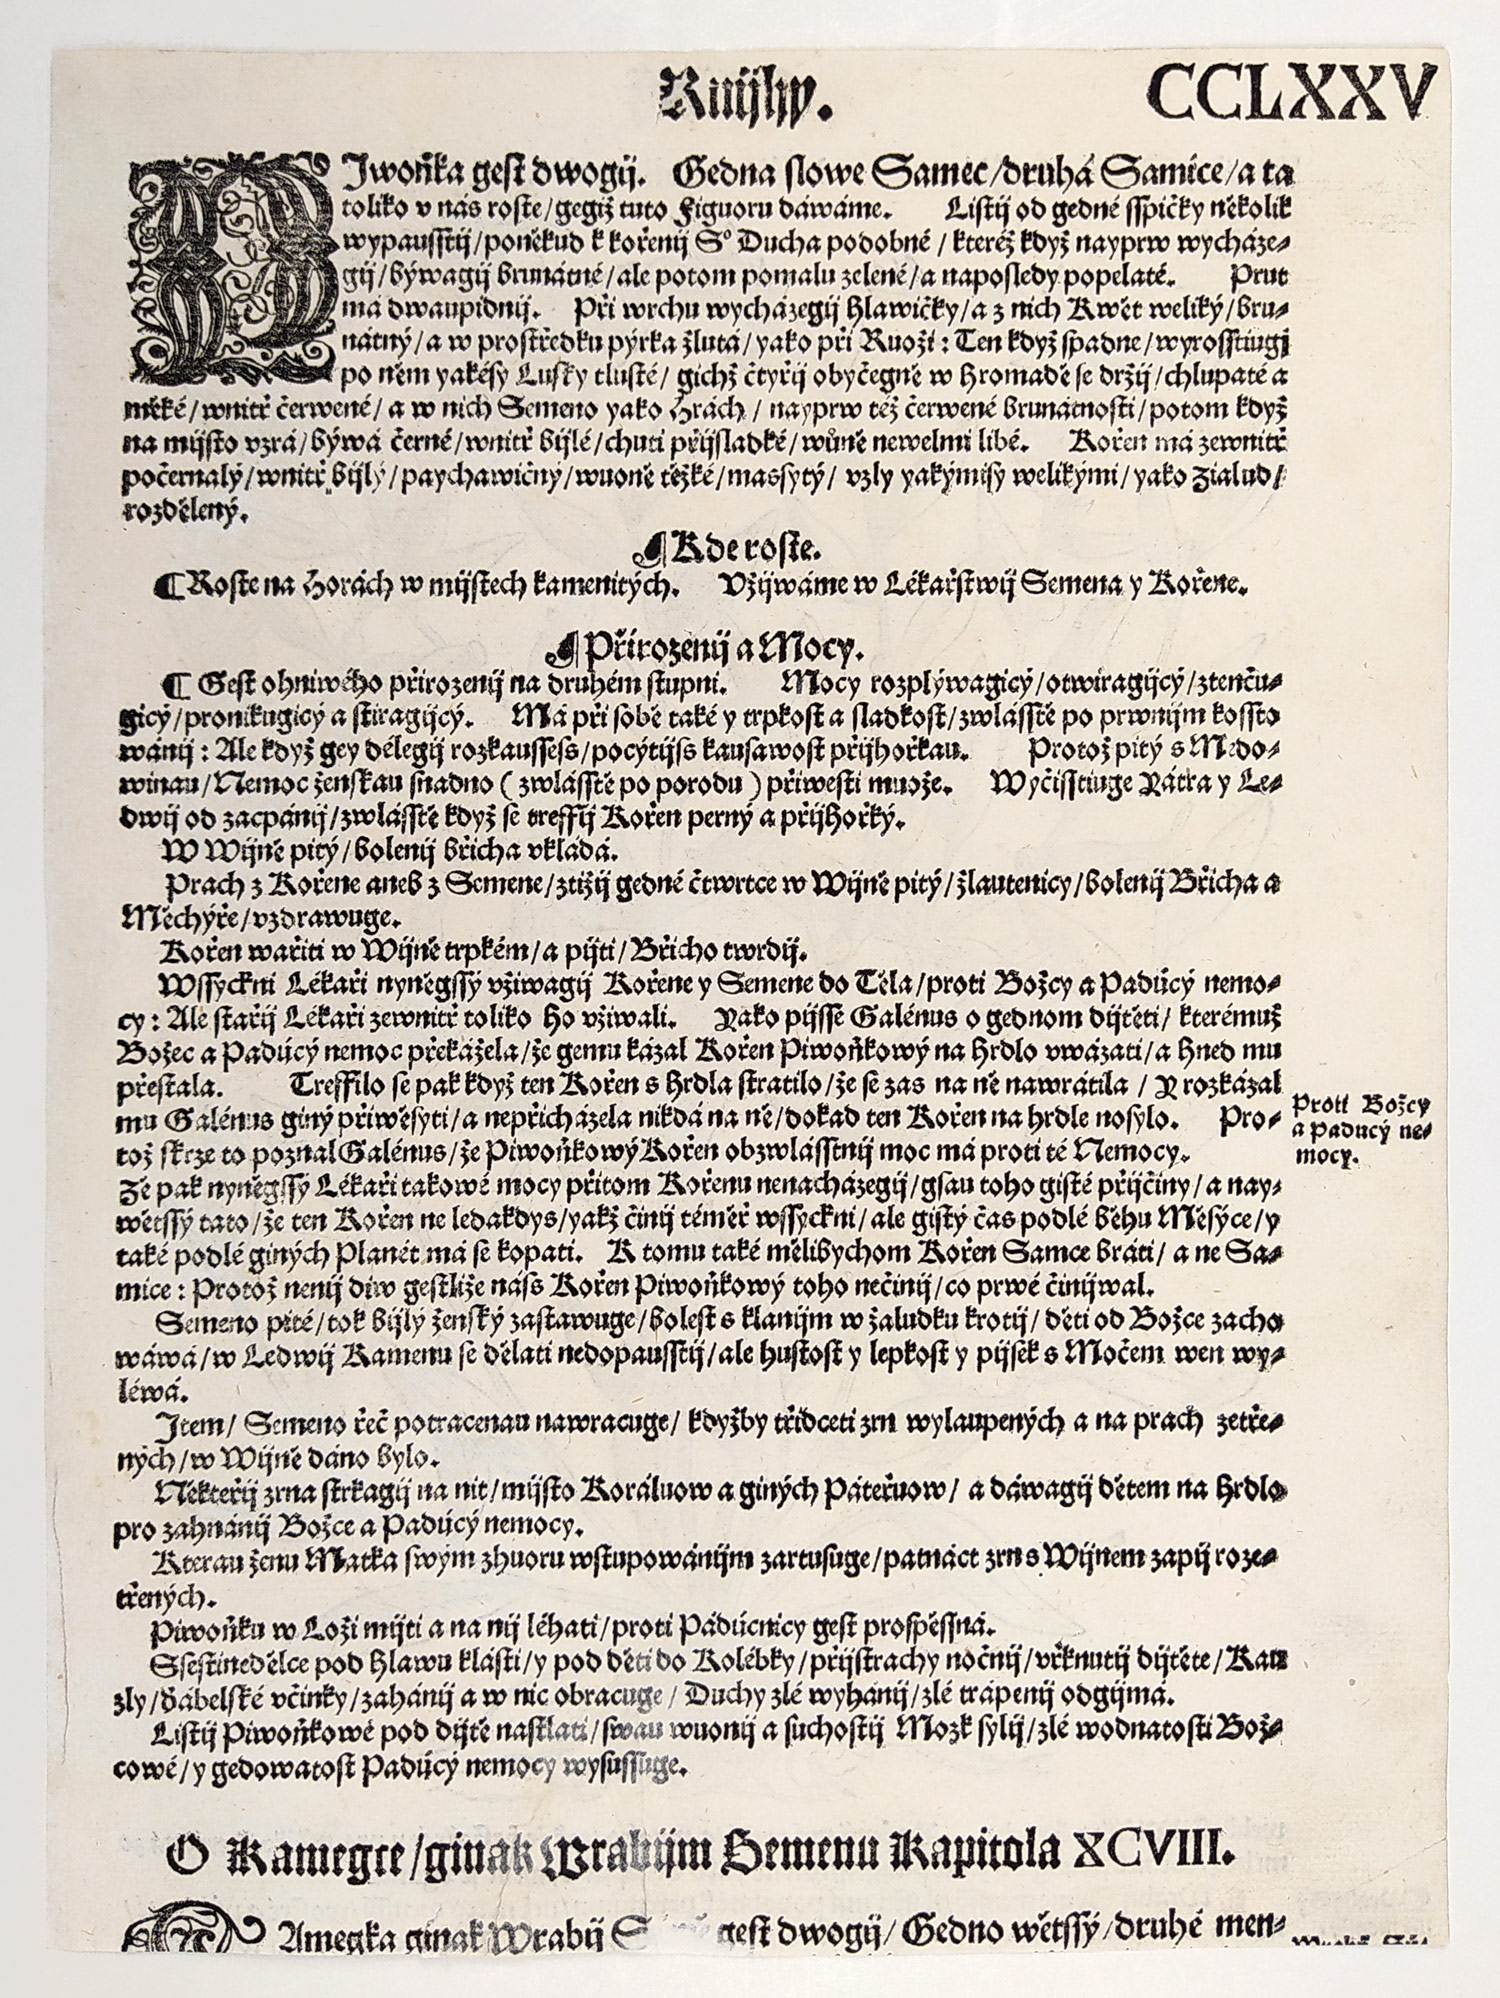 Knijhy. CCLXXV
PJwoňka gest dwogij. Gedna slowe Samec/druhá Samice/a ta
toliko v nás roste/gegiž tuto Figuoru dáwáme. Listij od gedné sspičky několik
wypausstij/poněkud k kořenij Sº Ducha podobné/kteréž když nayprw wycháze-
gij/býwagij brunátné/ale potom pomalu zelené/a naposledy popelaté. Prut
má dwaupidnij. Při wrchu wycházegij Hlawičky/a z nich Kwět weliký/bru-
nátný/a w prostředku pýrka žlutá/yako při Ruoži: Ten když spadne/wyrosstiugj
po něm yakésy Lusky tlusté/gichž čtyřij obyčegně w Hromadě se držij/chlupaté a
měké/wnitř čerwené/a w nich Semeno yako Hrách/nayprw též čerwené brunátnosti/potom když
na mijsto vzrá/býwá černé/wnitř bijlé/chuti přijsladké/wůně newelmi libé. Kořen má zewnitř
počernalý/wnitř bijlý/paychawičný/wuoně těžké/massytý/vzly yakýmisy welikými/yako Žialud/
rozdělený.
¶ Kde roste.
¶ Roste na Horách w mijstech kamenitých. Vžijwáme w Lékařstwij Semena y Kořene.
¶ Přirozenij a Mocy.
¶ Gest ohniwého přirozenij na druhém stupni. Mocy rozplýwagicý/otwiragijcý/ztenču-
gicý/pronikugicý a stiragijcý. Má při sobě také y trpkost a sladkost/zwlásstě po prwnijm kossto
wánij: Ale když gey délegij rozkaussess/pocýtijss kausawost přijhořkau. Protož pitý s Medo-
winau/Nemoc ženskau snadno (zwlásstě po porodu) přiwesti muože. Wyčisstiuge Yátra y Le-
dwij od zacpánij/zwlásstě když se treffij Kořen perný a přijhořký.
W Wijně pitý/bolenij břicha vkládá.
Prach z Kořene aneb z Semene/ztížij gedné čtwrtce w Wijně pitý/žlautenicy/bolenij Břicha a
Měchýře/vzdrawuge.
Kořen wařiti w Wijně trpkém/a pijti/Břicho twrdij.
Wssyckni Lékaři nyněgssý vžiwagij Kořene y Semene do Těla/proti Božcy a Padúcý nemo-
cy: Ale stařij Lékaři zewnitř toliko ho vžiwali. Yako pijsse Galénus o gednom dijtěti/kterémuž
Božec a Padúcý nemoc překážela/že gemu kázal Kořen Piwoňkowý na Hrdlo vwázati/a hned mu
přestala. Treffilo se pak když ten Kořen s Hrdla stratilo/že se zas na ně nawrátila/Y rozkázal
mu Galénus giný přiwěsyti/a nepřicházela nikdá na ně/dokad ten Kořen na hrdle nosylo. Pro-
tož skrze to poznal Galénus/že Piwoňkowý Kořen obzwlásstnij moc má proti té Nemocy.
Proti Božcy
a Padúcý ne-
mocy.
Že pak nyněgssý Lékaři takowé mocy přitom Kořenu nenacházegij/gsau toho gisté přijčiny/a nay-
wětssý tato/že ten Kořen ne ledakdys/yakž činij téměř wssyckni/ale gistý čas podlé běhu Měsýce/y
také podlé giných Planét má se kopati. K tomu také mělibychom Kořen Samce bráti/a ne Sa-
mice: Protož nenij diw gestliže náss Kořen Piwoňkowý toho nečinij/co prwé činijwal.
Semeno pité/tok bijlý ženský zastawuge/bolest s klanijm w žaludku krotij/děti od Božce zacho
wáwá/w Ledwij Kamenu se dělati nedopausstij/ale hustost y lepkost y pijsek s Močem wen wy-
léwá.
Jtem/Semeno řeč potracenau nawracuge/kdyžby třidceti zrn wylaupených a na prach zetře-
ných/w Wijně dáno bylo.
Někteřij zrna strkagij na nit/mijsto Koráluow a giných Páteřuow/a dáwagij dětem na hrdlo
pro zahnánij Božce a Padúcý nemocy.
Kterau ženu Matka swým zhuoru wstupowánijm zartusuge/patnáct zrn s Wijnem zapij roze-
třených.
Piwoňku w Loži mijti a na nij léhati/proti Pádúcnicy gest prospěssná.
Ssestinedělce pod Hlawu klásti/y pod děti do Kolébky/přijstrachy nočnij/vřknutij dijtěte/Kau
zly/ďábelské včinky/zahánij a w nic obracuge/Duchy zlé wyhánij/zlé trápenij odgijmá.
Listij Piwoňkowé pod dijtě nastlati/swau wuonij a suchostij Mozk sylij/zlé wodnatosti Bož-
cowé/y gedowatost Padúcý nemocy wysussuge.
O Kamegce/ginak Wrabijm Semenu Kapitola XCVIII.
KAmegka ginak Wrabij gest dwogij/Gedno wětssý/druhé men-